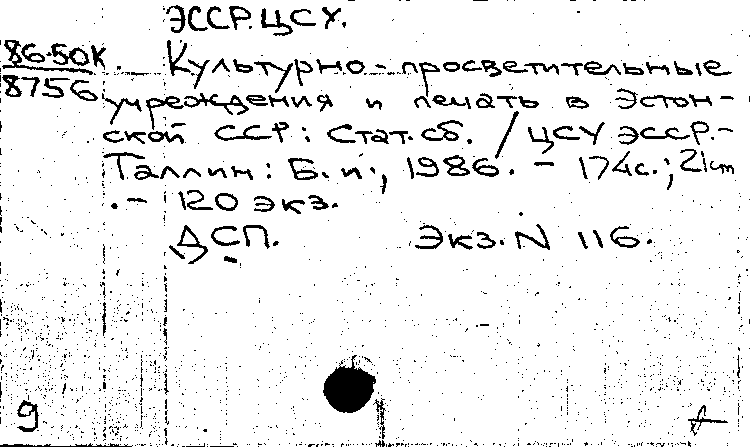 ЭССР. ЦСУ.
86-50К
8756
Культурно-просветительные
учреждения и печать в Эстон-
ской ССР: Стат. сб. / ЦСУ ЭССР.-
Таллин: Б. и., 1986. - 174с.; 21cm
.- 120 экз.
ДСП. Экз. N 116.
9